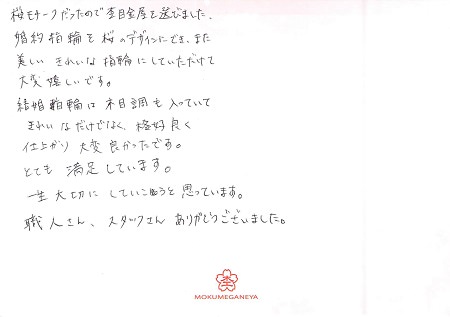 桜モチーフだったので杢目金屋を選びました。
婚約指輪も桜のデザインにでき、また
美しい きれいな指輪にしていただけて
大変嬉しいです。
結婚指輪は木目調も入っていて
きれいなだけでなく、格好良く
仕上がり 大変良かったです。
とても 満足しています。
一生 大切に していこうと思っています。
職人さん、スタッフさん ありがとうございました。
杢
MOKUMEGANEYA